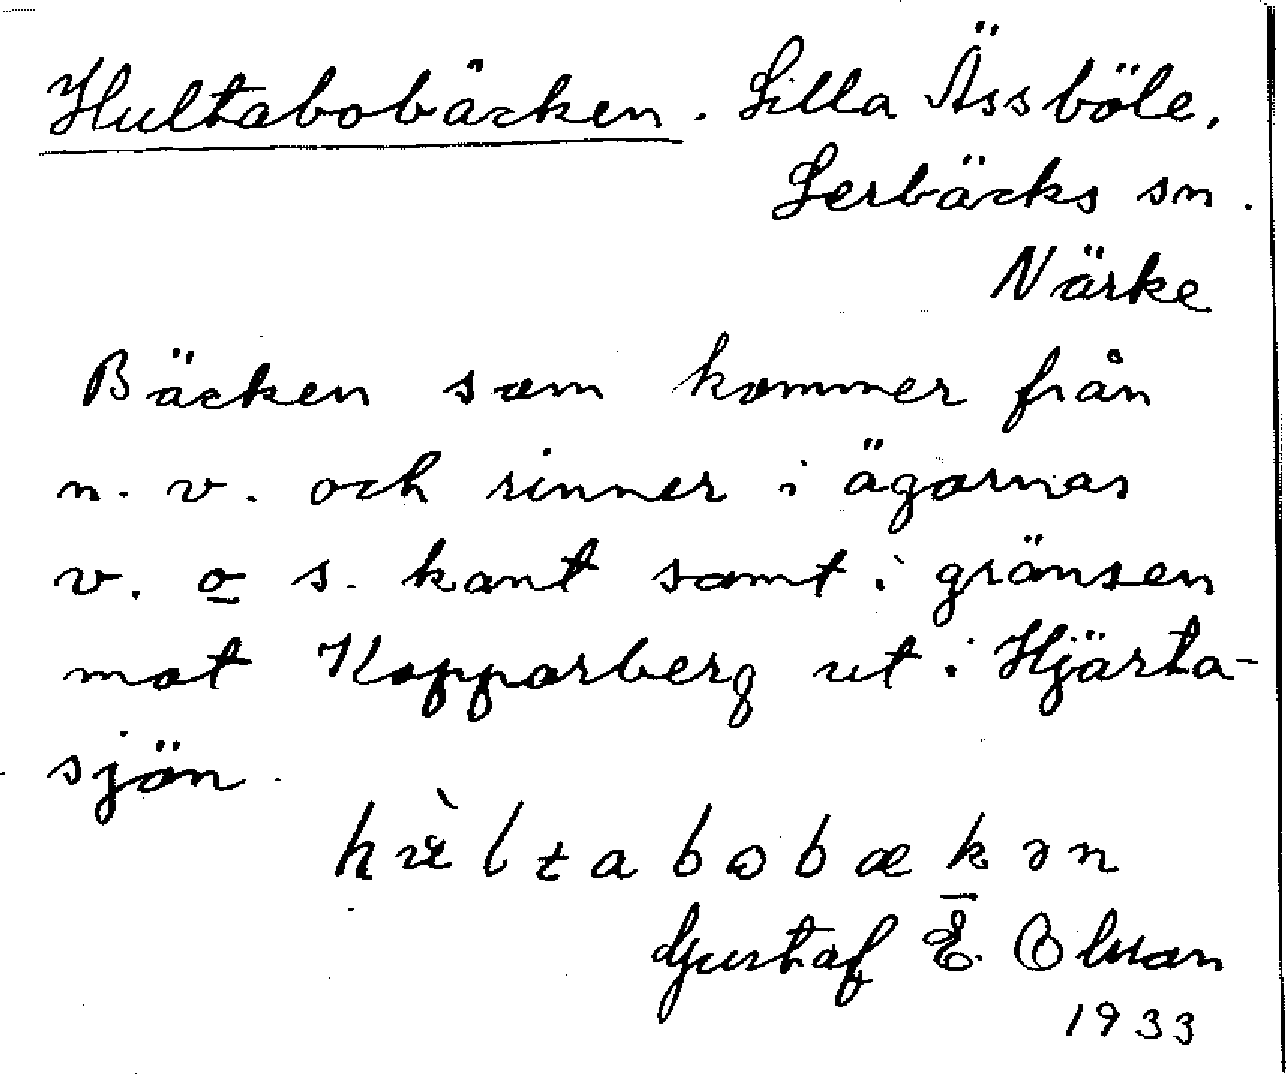 Hultabobäcken. Lilla Ässböle,
Lerbäcks sn.
Närke
Bäcken som kommer från
n. v. och rinner i ägornas
v. o s. kant samt i gränsen
mot Kopparberg ut i Hjärta-
sjön.
Gustaf E. Olsson
1933